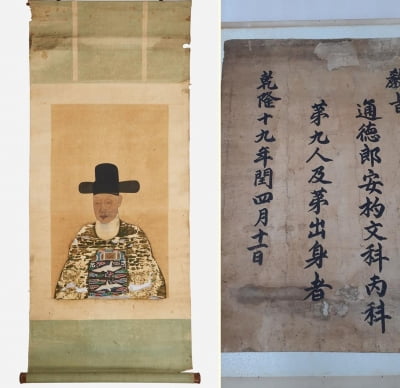 敎旨
通德郎安杓文科丙科
苐九人及苐出身者
乾隆十九年閏四月十日